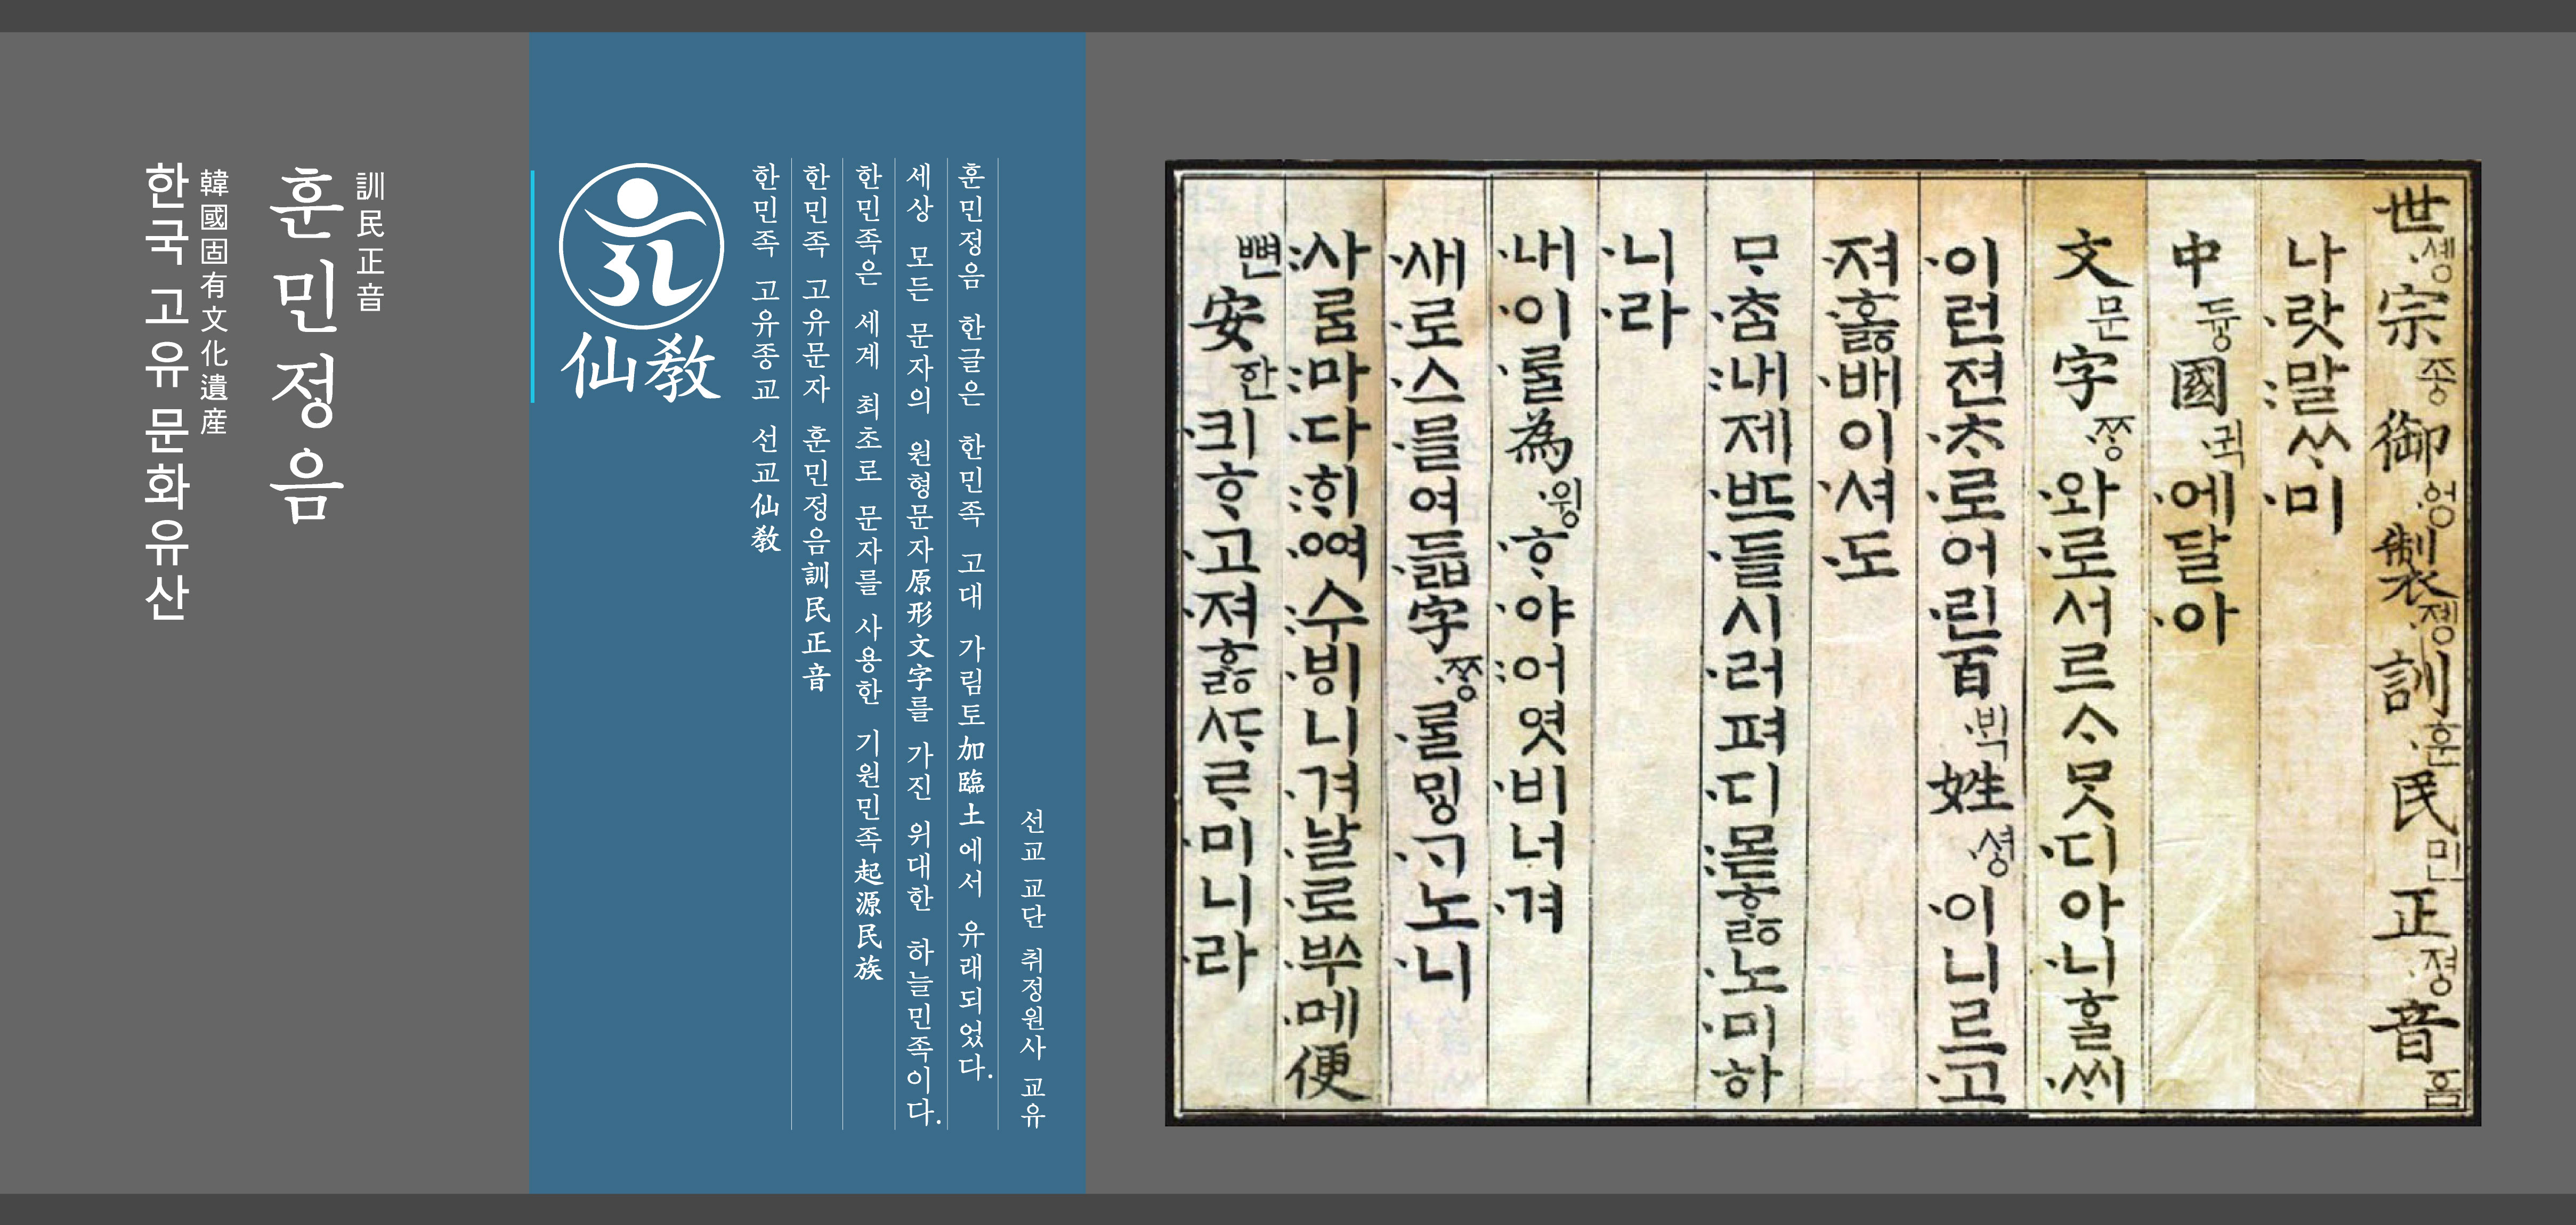 世솅宗종御엉製졩訓훈民민正졍音ᅙᅳᆷ
나·랏:말ᄊᆞ·미
中듕國·귁·에달·아
文문字·ᄍᆞᆼ·와·로서르ᄉᆞᄆᆞᆺ·디아·니ᄒᆞᆯ·ᄊᆡ
·이런젼·ᄎᆞ·로어·린百·ᄇᆡᆨ姓·셩·이니르·고
·져·호ᇙ·배이·셔·도
ᄆᆞ·ᄎᆞᆷ:내제·ᄠᅳ·들시·러펴·디:몯ᄒᆞᇙ·노·미하
·니·라
·내·이·ᄅᆞᆯ為·윙·ᄒᆞ·야:어엿·비너·겨
·새·로·스·믈여·듧字·ᄍᆞᆼ·ᄅᆞᆯᄆᆡᇰ·ᄀᆞ·노·니
:사ᄅᆞᆷ:마·다:ᄒᆡ·ᅇᅧ:수·ᄫᅵ니·겨·날·로·ᄡᅮ·메便
뼌安한·킈ᄒᆞ·고·져ᄒᆞᇙᄯᆞᄅᆞ·미니·라
선교 교단 취정원사 교유
훈민정음 한글은 한민족 고대 가림토加臨土에서 유래되었다.
세상 모든 문자의 원형문자原形文字를 가진 위대한 하늘민족이다.
한민족은 세계 최초로 문자를 사용한 기원민족起源民族
한민족 고유문자 훈민정음訓民正音
한민족 고유종교 선교仙敎
仙敎
訓民正音
훈민정음
韓國固有文化遺産
한국 고유 문화유산